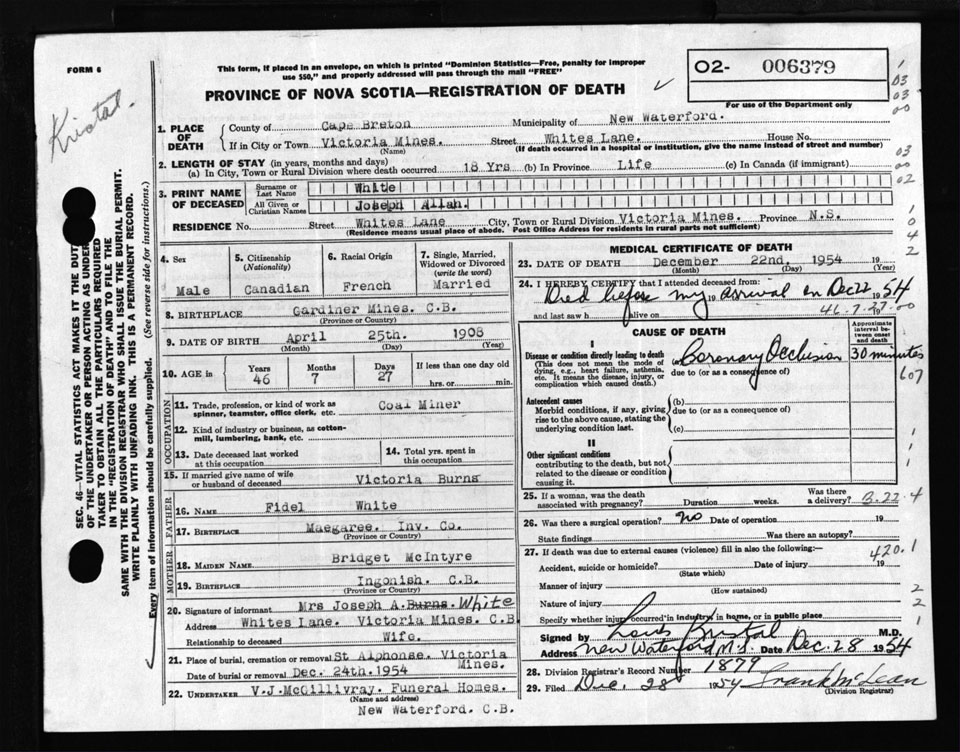 FORM 6
This form, if placed in an envelope, on which is printed "Dominion Statistics—Free, penalty for improper
use $50," and properly addressed will pass through the mail "FREE"
PROVINCE OF NOVA SCOTIA—REGISTRATION OF DEATH
O2- 006379
For use of the Department only
Kristal.
1. PLACE OF DEATH
County of Cape Breton Municipality of New Waterford.
If in City or Town Victoria Mines. Street Whites Lane. House No.
(Name) (If death occurred in a hospital or institution, give the name instead of street and number)
2. LENGTH OF STAY (in years, months and days)
(a) In City, Town or Rural Division where death occurred 18 Yrs (b) In Province Life (c) In Canada (if immigrant)
3. PRINT NAME OF DECEASED
Surname or Last Name White
All Given or Christian Names Joseph Allan.
RESIDENCE No. Street Whites Lane City, Town or Rural Division Victoria Mines. Province N.S.
(Residence means usual place of abode. Post Office Address for residents in rural parts not sufficient)
4. Sex Male
5. Citizenship (Nationality) Canadian
6. Racial Origin French
7. Single, Married, Widowed or Divorced (write the word) Married
8. BIRTHPLACE Gardiner Mines. C.B.
(Province or Country)
9. DATE OF BIRTH April 25th. 1908
(Month) (Day) (Year)
10. AGE in Years 46 Months 7 Days 27 If less than one day old
hrs. or min.
OCCUPATION
11. Trade, profession, or kind of work as spinner, teamster, office clerk, etc. Coal Miner
12. Kind of industry or business, as cotton-mill, lumbering, bank, etc.
13. Date deceased last worked at this occupation
14. Total yrs. spent in this occupation
15. If married give name of wife or husband of deceased Victoria Burns
FATHER
16. NAME Fidel White
17. BIRTHPLACE Maegaree. Inv. Co.
(Province or Country)
MOTHER
18. MAIDEN NAME Bridget McIntyre
19. BIRTHPLACE Ingonish. C.B.
(Province or Country)
20. Signature of informant Mrs Joseph A. Burns. White
Address Whites Lane. Victoria Mines. C.B.
Relationship to deceased Wife.
21. Place of burial, cremation or removal St Alphonse. Victoria Mines.
Date of burial or removal Dec. 24th. 1954
22. UNDERTAKER V.J. McGillivray. Funeral Homes.
(Name and address)
New Waterford. C.B.
MEDICAL CERTIFICATE OF DEATH
23. DATE OF DEATH December 22nd, 1954 19
(Month) (Day) (Year)
24. I HEREBY CERTIFY that I attended deceased from:
Died before my 19 arrival on Dec 22 1954
and last saw h alive on 19
46-7-27-00
CAUSE OF DEATH
Approximate interval between onset and death
I
Disease or condition directly leading to death
(This does not mean the mode of dying, e.g., heart failure, asthenia, etc. It means the disease, injury, or complication which caused death.)
(a) Coronary Occlusion 30 minutes
due to (or as a consequence of)
607
Antecedent causes
Morbid conditions, if any, giving rise to the above cause, stating the underlying condition last.
(b)
due to (or as a consequence of)
(c)
II
Other significant conditions
contributing to the death, but not related to the disease or condition causing it.
25. If a woman, was the death associated with pregnancy? Duration weeks. Was there a delivery? 3.22.4
26. Was there a surgical operation? no Date of operation 19
State findings Was there an autopsy?
27. If death was due to external causes (violence) fill in also the following:— 420.1
Accident, suicide or homicide? Date of injury 19
(State which)
Manner of injury
(How sustained)
Nature of injury
Specify whether injury occurred in industry, in home, or in public place
Signed by Louis Kristal M.D.
Address New Waterford, N.S. Date Dec. 28 1954
28. Division Registrar's Record Number 1879
29. Filed Dec. 28 1954 Frank McLean
(Division Registrar)
SEC. 46—VITAL STATISTICS ACT MAKES IT THE DUTY
OF THE UNDERTAKER OR PERSON ACTING AS UNDER-
TAKER TO OBTAIN ALL THE PARTICULARS REQUIRED
IN THE "REGISTRATION OF DEATH" AND TO FILE THE
SAME WITH THE DIVISION REGISTRAR WHO SHALL ISSUE THE BURIAL PERMIT.
WRITE PLAINLY WITH UNFADING INK. THIS IS A PERMANENT RECORD.
Every item of information should be carefully supplied. (See reverse side for instructions.)
1
03
03
00
03
00
02
1
0
4
2
1
1
1
2
2
1